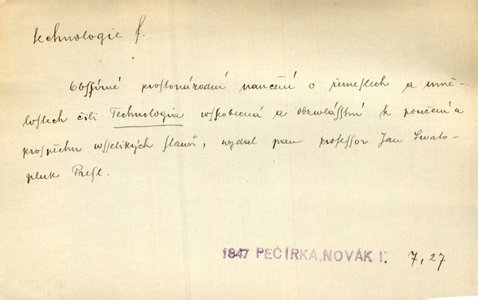 technologie f.
Obssírné prostonárodní naučení o řemeslech a umě-
lostech čili Technologia wsseobecná a obzwlásstní k poučení a
prospěchu wsselikých stawů, wydal pan professor Jan Swato-
pluk Presl.
1847 PEČÍRKA, NOVÁK I. 7, 27